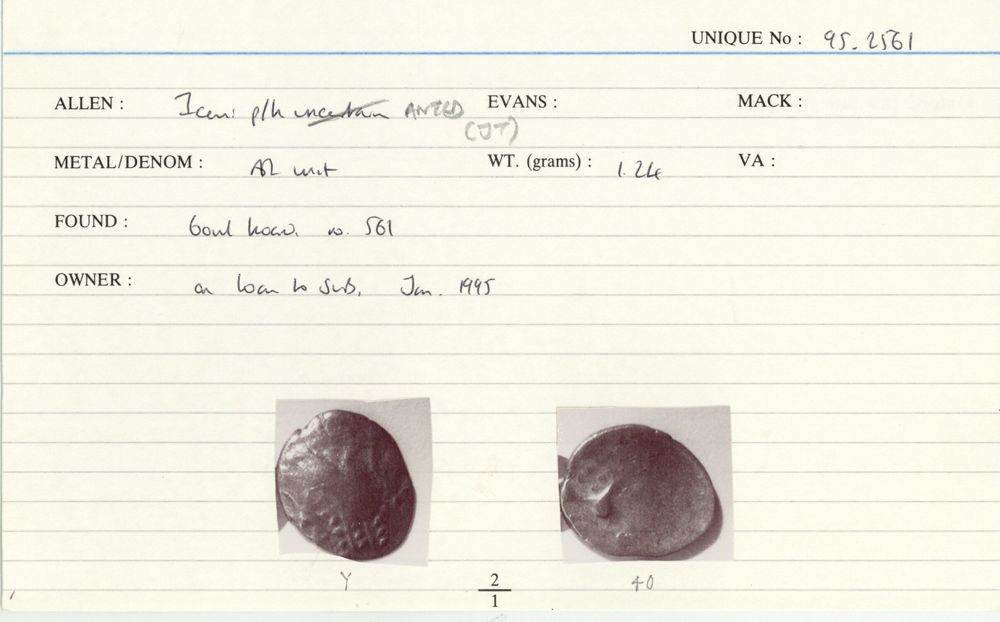 UNIQUE No : 95. 2561
ALLEN : Iceni p/h uncertain ANTED EVANS : MACK :
(JT)
METAL/DENOM : AR unit WT. (grams) : 1.24 VA :
FOUND : hoard no. 561
OWNER : on loan to Jan. 1995
Y 2 40
1